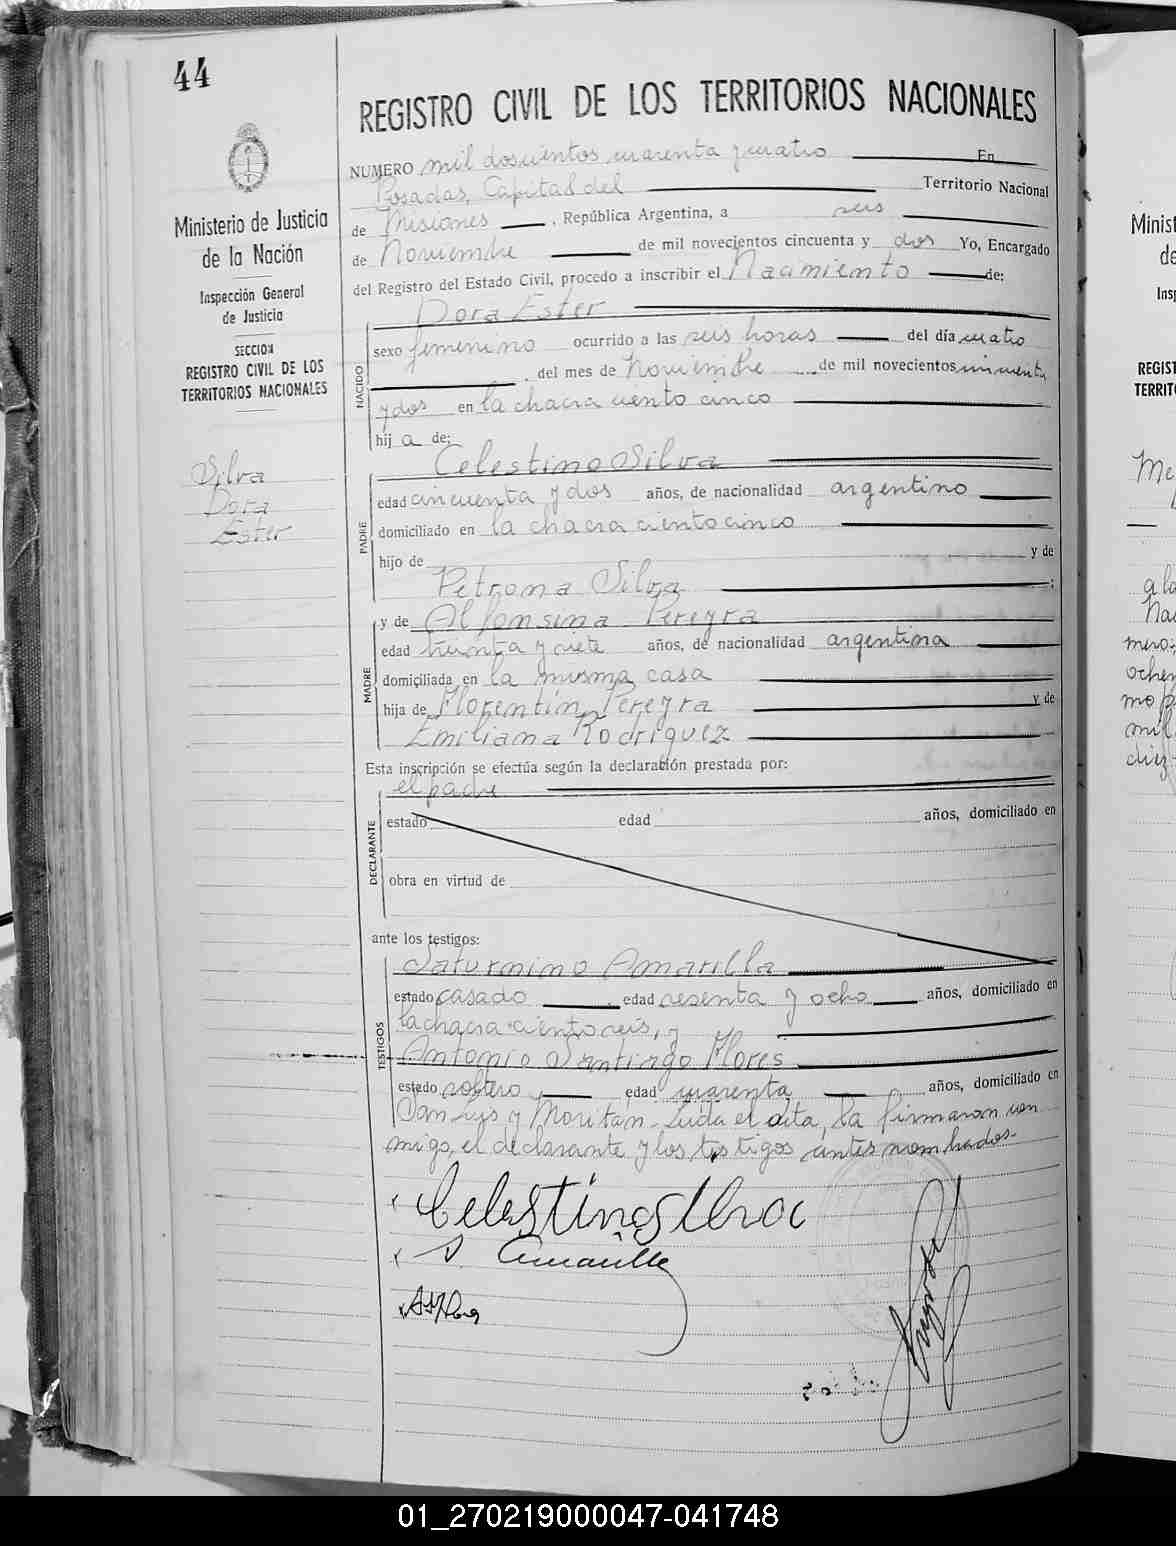 44
REGISTRO CIVIL DE LOS TERRITORIOS NACIONALES
Ministerio de Justicia
de la Nación
Inspección General
de Justicia
SECCION
REGISTRO CIVIL DE LOS
TERRITORIOS NACIONALES
Silva
Dora
Ester
NUMERO mil doscientos cuarenta y cuatro En
Posadas, Capital del Territorio Nacional
de Misiones, República Argentina, a seis
de Noviembre de mil novecientos cincuenta y dos Yo, Encargado
del Registro del Estado Civil, procedo a inscribir el Nacimiento de:
Dora Ester
NACIDO
sexo femenino ocurrido a las seis horas del día cuatro
, del mes de Noviembre de mil novecientos cincuenta
y dos en la chacra ciento cinco
hija de:
Celestino Silva
PADRE
edad cincuenta y dos años, de nacionalidad argentino
domiciliado en la chacra ciento cinco
hijo de y de
Petrona Silva ;
MADRE
y de Alfonsina Pereyra
edad treinta y siete años, de nacionalidad argentina
domiciliada en la misma casa
hija de Florentín Pereyra y de
Emiliana Rodriguez
Esta inscripción se efectúa según la declaración prestada por:
el padre
DECLARANTE
estado edad años, domiciliado en
obra en virtud de
ante los testigos:
TESTIGOS
Saturnino Amarilla
estado casado, edad sesenta y ocho años, domiciliado en
la chacra ciento seis, y
Antonio Santiago Flores
estado soltero, edad cuarenta años, domiciliado en
San Luis y Moritan. Leida el acta, la firmaron con
migo, el declarante y los testigos antes nombrados.-
Celestino Silva
S. Amarilla
Minist
de
Insp
REGIST
TERRIT
01_270219000047-041748